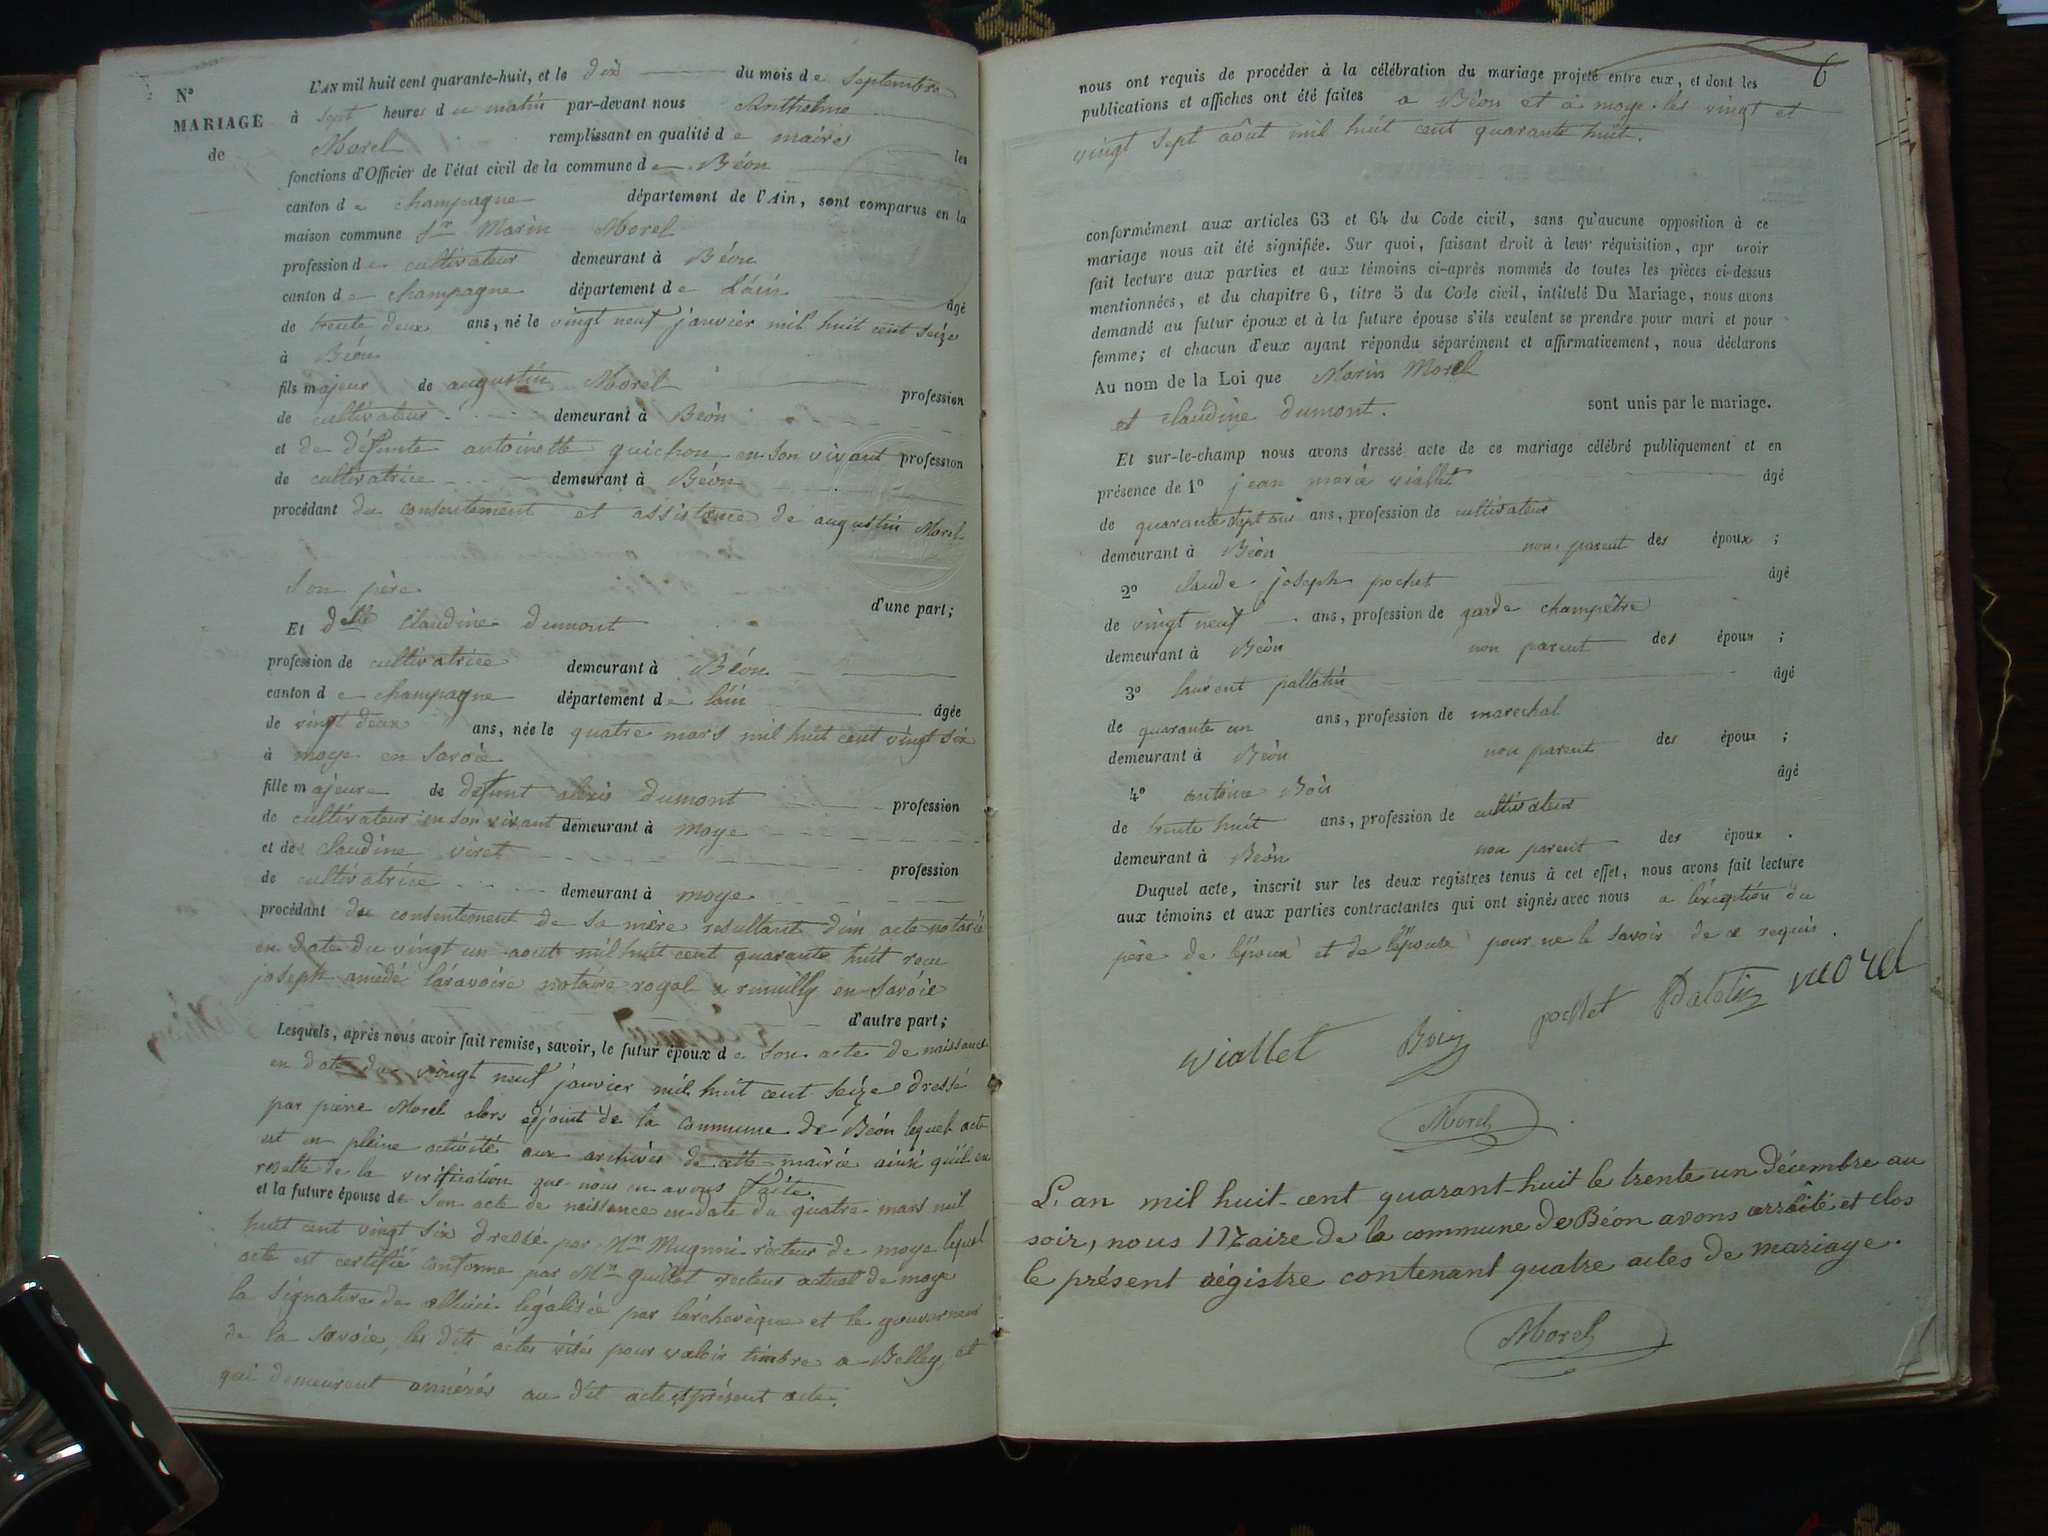 N°
MARIAGE
de
L'AN mil huit cent quarante-huit, et le dix du mois de Septembre
à sept heures du matin par-devant nous Anthelme
Morel remplissant en qualité de maire les
fonctions d'Officier de l'état civil de la commune de Béon
canton de champagne département de l'Ain, sont comparus en la
maison commune Sr Marin Morel
profession de cultivateur demeurant à Béon
canton de champagne département de l'ain âgé
de trente deux ans, né le vingt neuf janvier mil huit cent seize
à Béon
fils majeur de augustin Morel profession
de cultivateur demeurant à Béon
et de défunte antoinette guichon en son vivant profession
de cultivatrice demeurant à Béon
procédant du consentement et assistance de augustin Morel
son père
d'une part;
Et dlle Claudine dumont
profession de cultivatrice demeurant à Béon
canton de champagne département de l'ain âgée
de vingt deux ans, née le quatre mars mil huit cent vingt six
à moye en savoie
fille majeure de défunt alexis dumont profession
de cultivateur en son vivant demeurant à moye
et de Claudine viret profession
de cultivatrice demeurant à moye
procédant du consentement de sa mère resultant d'un acte notarié
en date du vingt un aout mil huit cent quarante huit recu
joseph amédé laravoire notaire royal a rumilly en savoie
d'autre part;
Lesquels, après nous avoir fait remise, savoir, le futur époux de son acte de naissance
en date du vingt neuf janvier mil huit cent seize dressé
par pierre Morel alors adjoint de la commune de Béon lequel acte
est en pleine activité aux archives de cette mairie ainsi qu'il en
resulte de la vérification que nous en avons faite.
et la future épouse de son acte de naissance en date du quatre mars mil
huit cent vingt six dressé par Mr recteur de moye lequel
acte est certifié conforme par Mr guillet recteur actuel de moye
la signature de légalisée par l'archevêque et le gouverneur
de la savoie, les dits actes visés pour valoir timbre a Belley, et
qui demeurent annéxés au dit acte et présent acte.
6
nous ont requis de procéder à la célébration du mariage projeté entre eux, et dont les
publications et affiches ont été faites a Béon et à moye les vingt et
vingt sept août mil huit cent quarante huit.
conformément aux articles 63 et 64 du Code civil, sans qu'aucune opposition à ce
mariage nous ait été signifiée. Sur quoi, faisant droit à leur réquisition, apr avoir
fait lecture aux parties et aux témoins ci-après nommés de toutes les pièces ci-dessus
mentionnées, et du chapitre 6, titre 5 du Code civil, intitulé Du Mariage, nous avons
demandé au futur époux et à la future épouse s'ils veulent se prendre pour mari et pour
femme; et chacun d'eux ayant répondu séparément et affirmativement, nous déclarons
Au nom de la Loi que Marin Morel
et claudine dumont. sont unis par le mariage.
Et sur-le-champ nous avons dressé acte de ce mariage célébré publiquement et en
présence de 1° jean marie viallet âgé
de quarante sept ans ans, profession de cultivateur
demeurant à Béon non parent des époux ;
2° claude joseph pochet âgé
de vingt neuf ans, profession de garde champêtre
demeurant à Béon non parent des époux ;
3° laurent pallatin âgé
de quarante un ans, profession de marechal
demeurant à Béon non parent des époux ;
4° antoine Boin âgé
de trente huit ans, profession de cultivateur
demeurant à Béon non parent des époux .
Duquel acte, inscrit sur les deux registres tenus à cet effet, nous avons fait lecture
aux témoins et aux parties contractantes qui ont signés avec nous a l'éxception du
père de l'époux et de l'épouse pour ne le savoir de ce requis.
viallet Boin pochet Palatin morel
Morel
L'an mil huit-cent quarant-huit le trente un décembre au
soir, nous Maire de la commune de Béon avons arrêté et clos
le présent régistre contenant quatre actes de mariage.
Morel